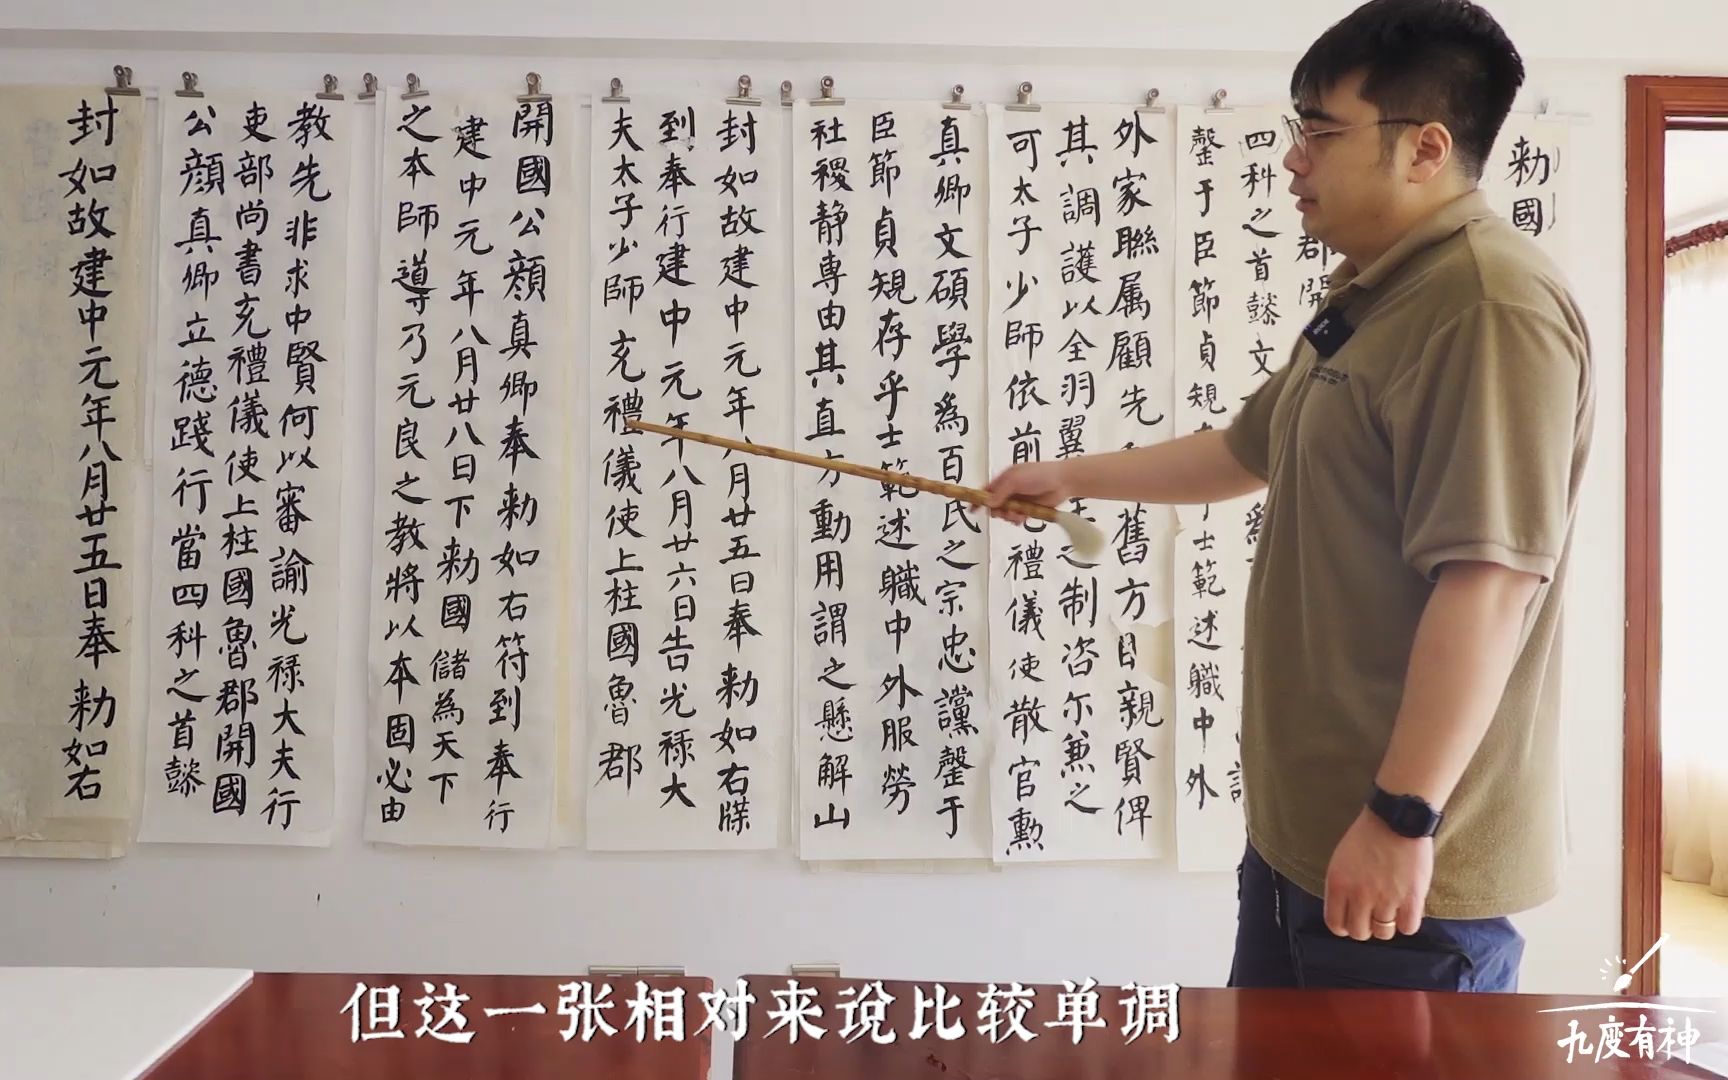 敕國
郡開
四科之首懿文
罄于臣節貞規
士範述職中外
外家聯属顧先
舊方目親賢俾
其調護以全羽翼
之制咨尔兼之
可太子少師依前
禮儀使散官勲
真卿文碩學為百氏之宗忠讜罄于
臣節貞規存乎士範述職中外服勞
社稷静専由其直方動用謂之懸解山
封如故建中元年八月廿五日奉敕如右牒
到奉行建中元年八月廿六日告光禄大
夫太子少師充禮儀使上柱國魯郡
開國公顔真卿奉敕如右符到奉行
建中元年八月廿八日下敕國儲為天下
之本師導乃元良之教將以本固必由
教先非求中賢何以審諭光禄大夫行
吏部尚書充禮儀使上柱國魯郡開國
公顔真卿立德踐行當四科之首懿
封如故建中元年八月廿五日奉敕如右
但这一张相对来说比较单调
九度有神